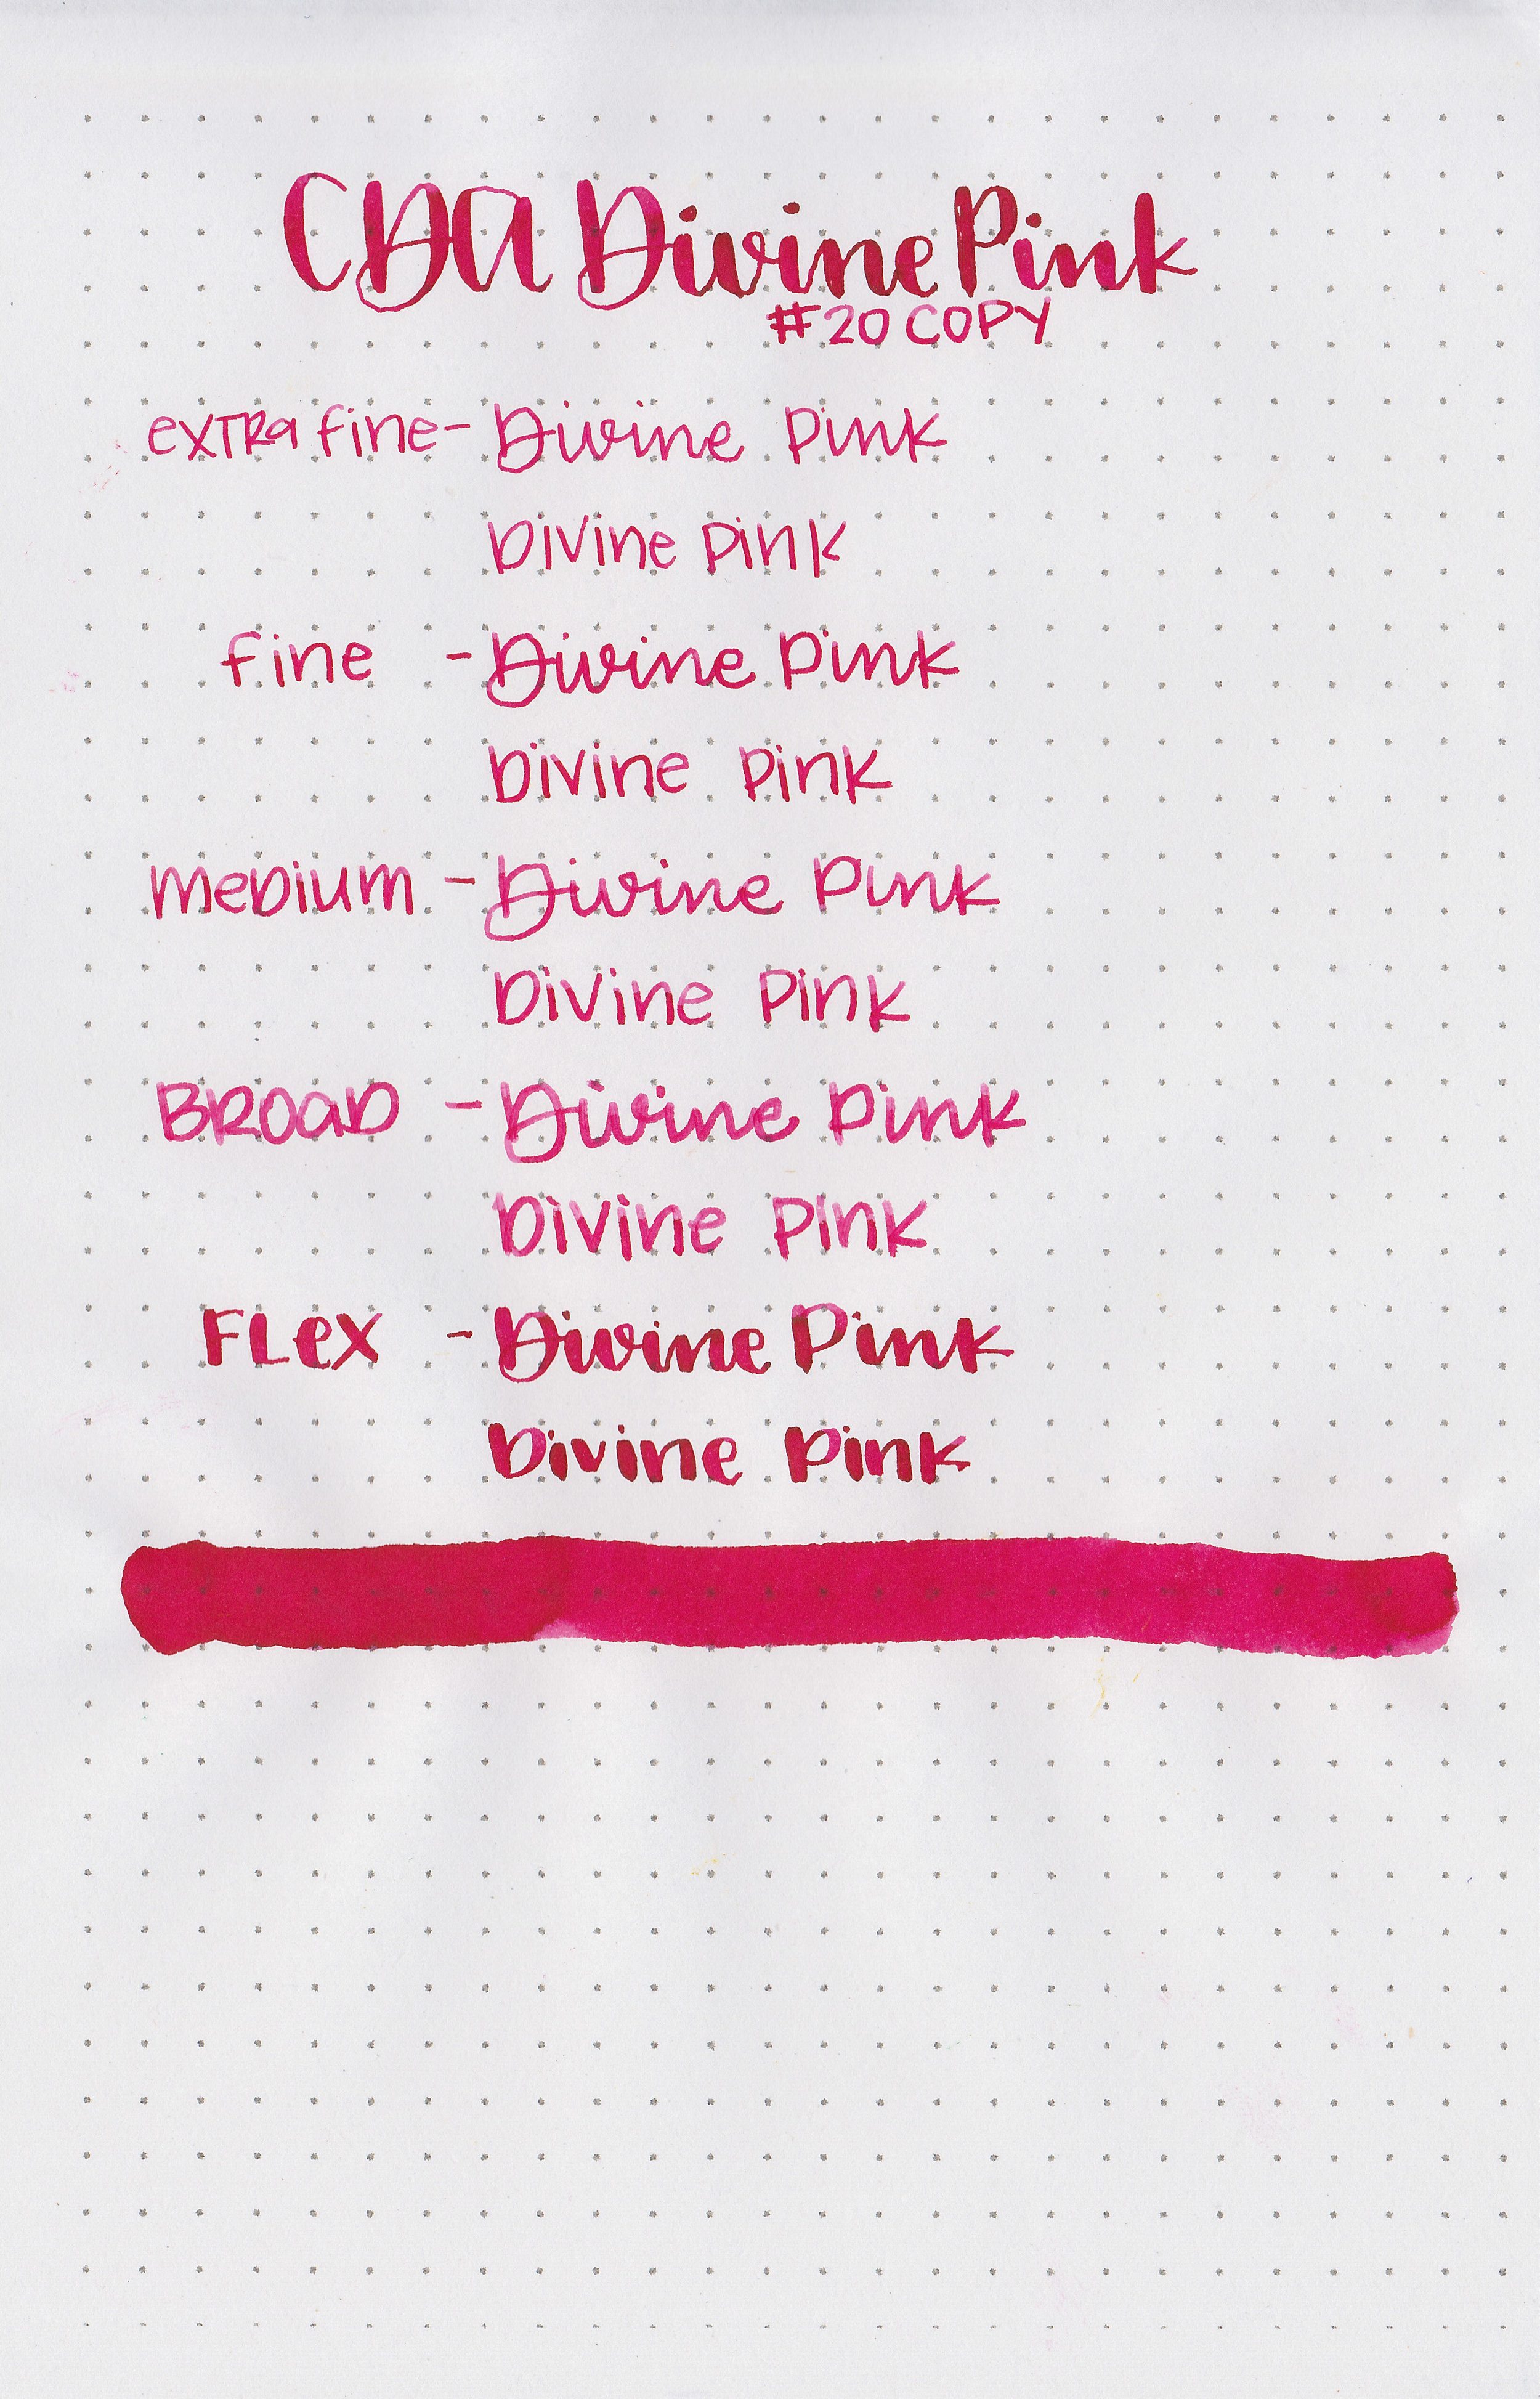 CDA Divine Pink
#20 COPY
extra fine - Divine Pink
Divine Pink
fine - Divine Pink
Divine Pink
medium - Divine Pink
Divine Pink
BROAD - Divine Pink
Divine Pink
FLex - Divine Pink
Divine Pink